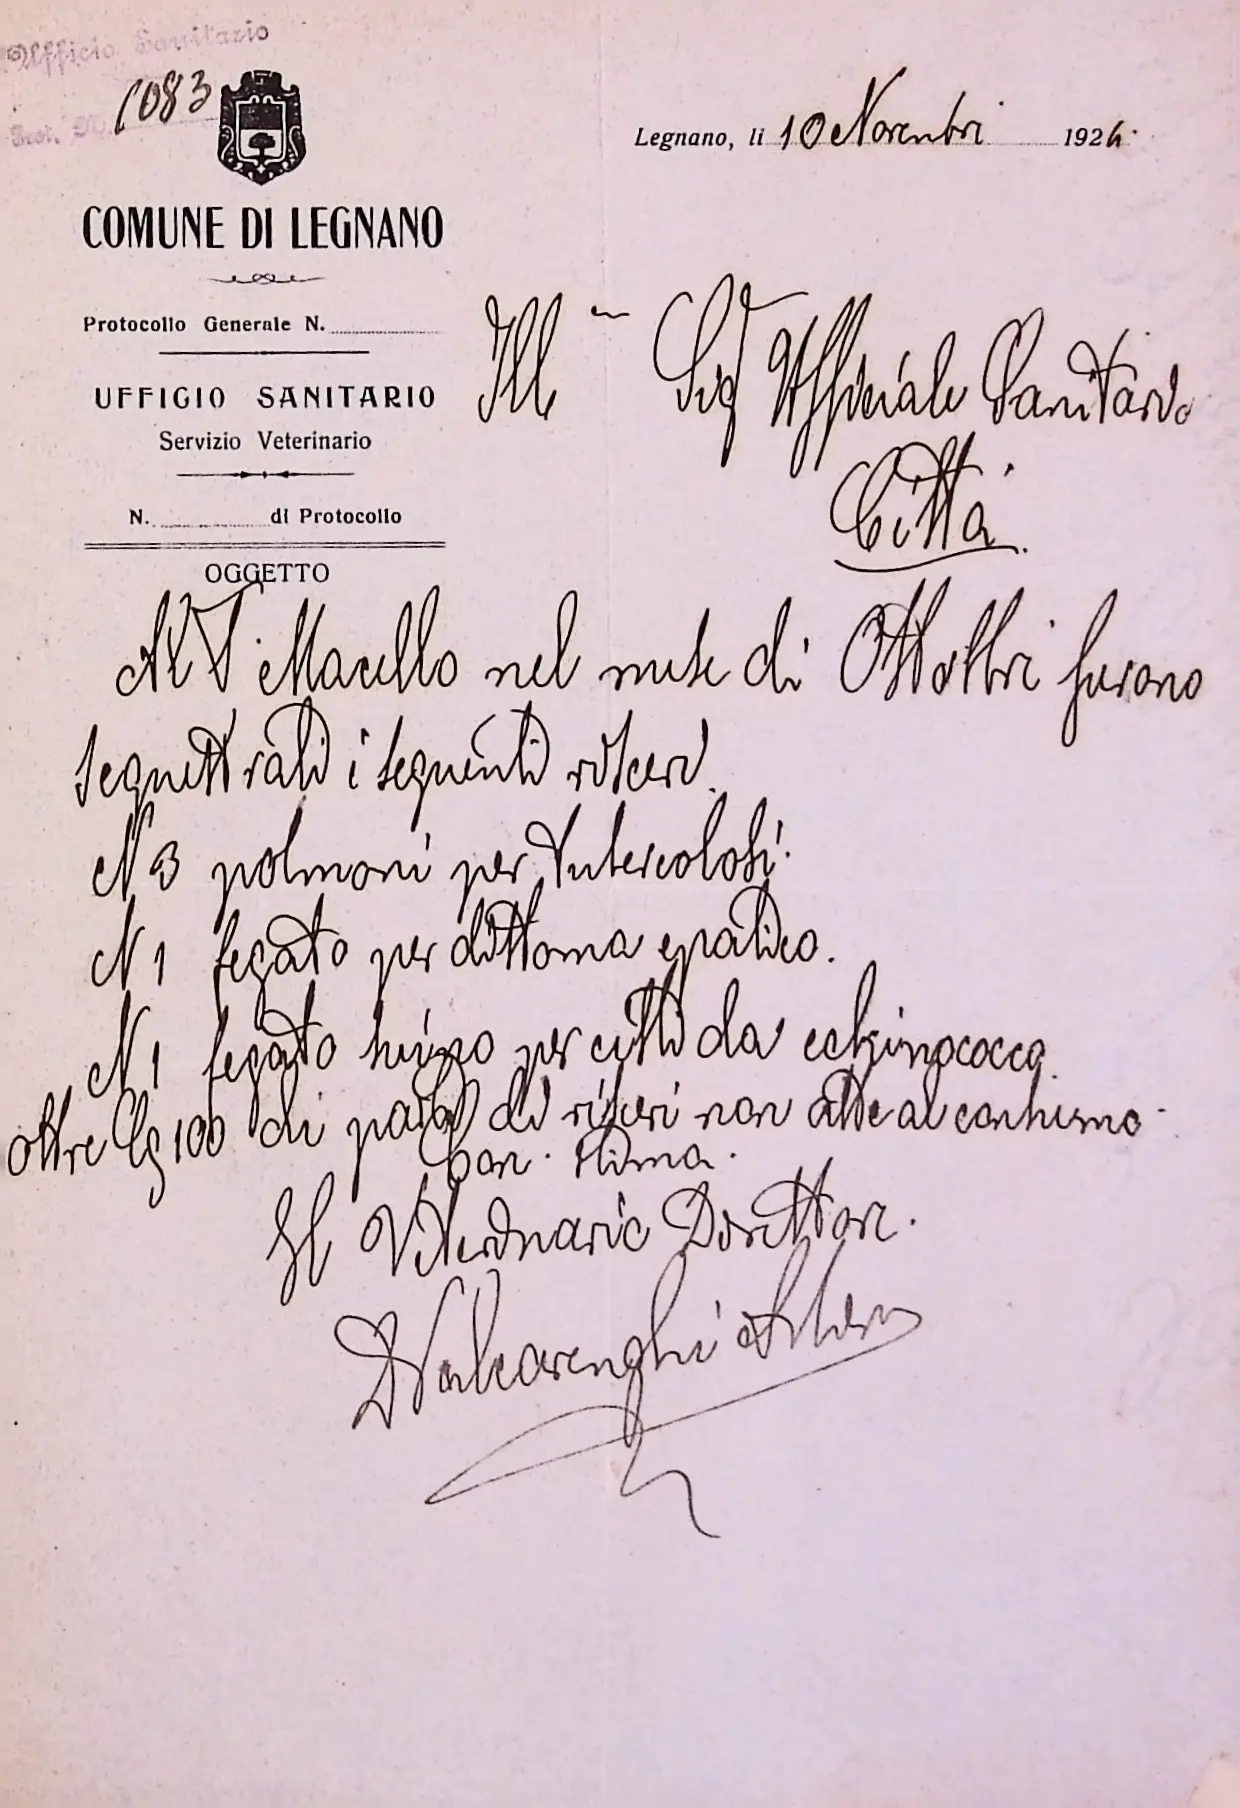 Ufficio Sanitario
Prot. N. 1083
Legnano, li 10 Novembri 1926.
COMUNE DI LEGNANO
Protocollo Generale N.
UFFICIO SANITARIO
Servizio Veterinario
N. di Protocollo
OGGETTO
Ill mo Sig Ufficiale Sanitario
Città.
Al Macello nel mese di Ottobri furono
sequestrati i seguenti visceri.
N 3 polmoni per tubercolosi.
N 1 fegato per distoma epatico.
N 1 fegato suino per cisti da echinococco
oltre Cg 100 di parti di visceri non atte al consumo.
Con. stima.
Il Veterinario Direttore.
D Valcarenghi